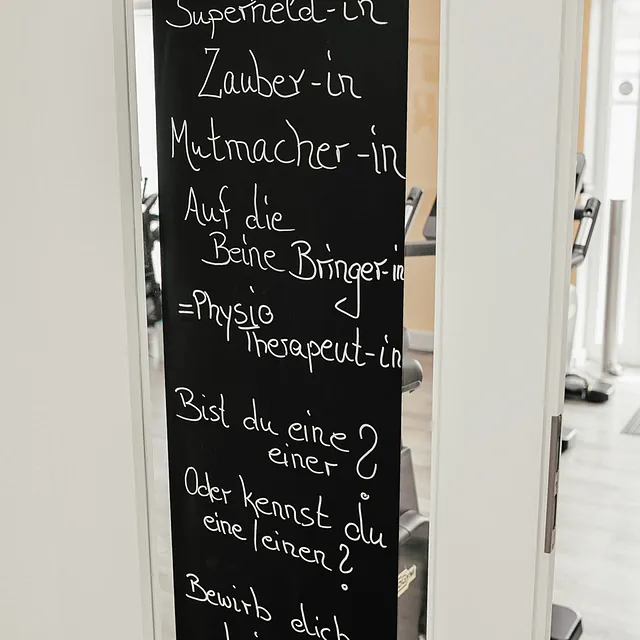 Superheld-in
Zauber-in
Mutmacher-in
Auf die
Beine Bringer-in
=Physio
Therapeut-in
Bist du eine
einer?
Oder kennst du
eine/einen?
Bewirb dich